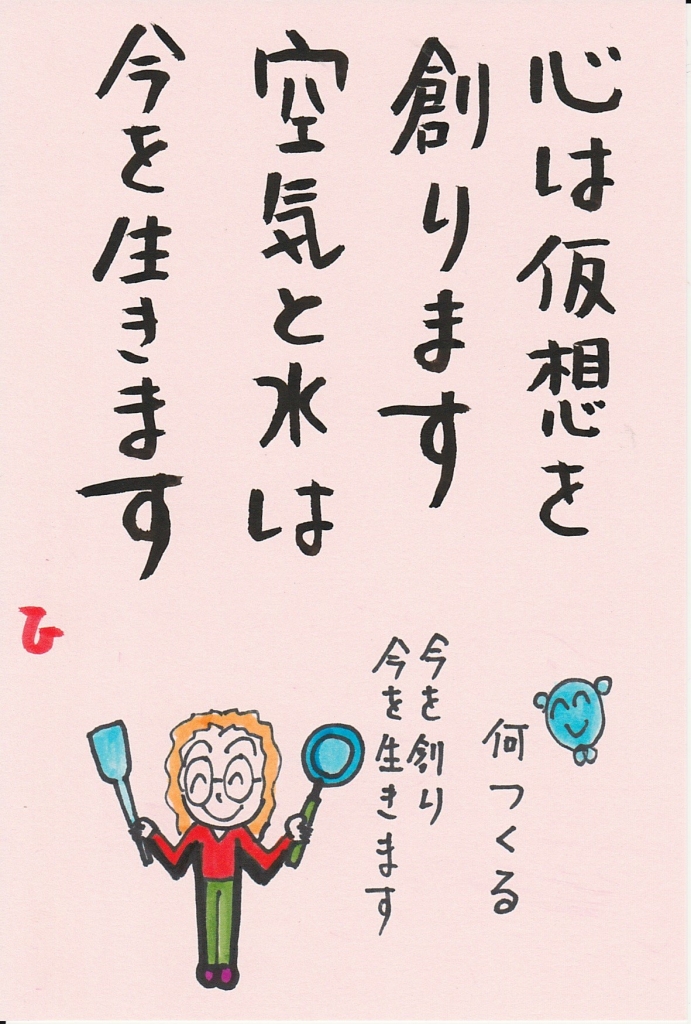 心は仮想を
創ります
空気と水は
今を生きます
何つくる
今を創り
今を生きます
ひ